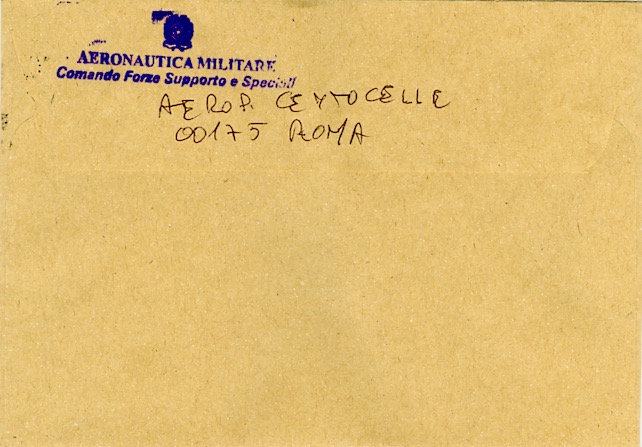 AERONAUTICA MILITARE
Comando Forze Supporto e Speciali
AEROP. CENTOCELLE
00175 ROMA